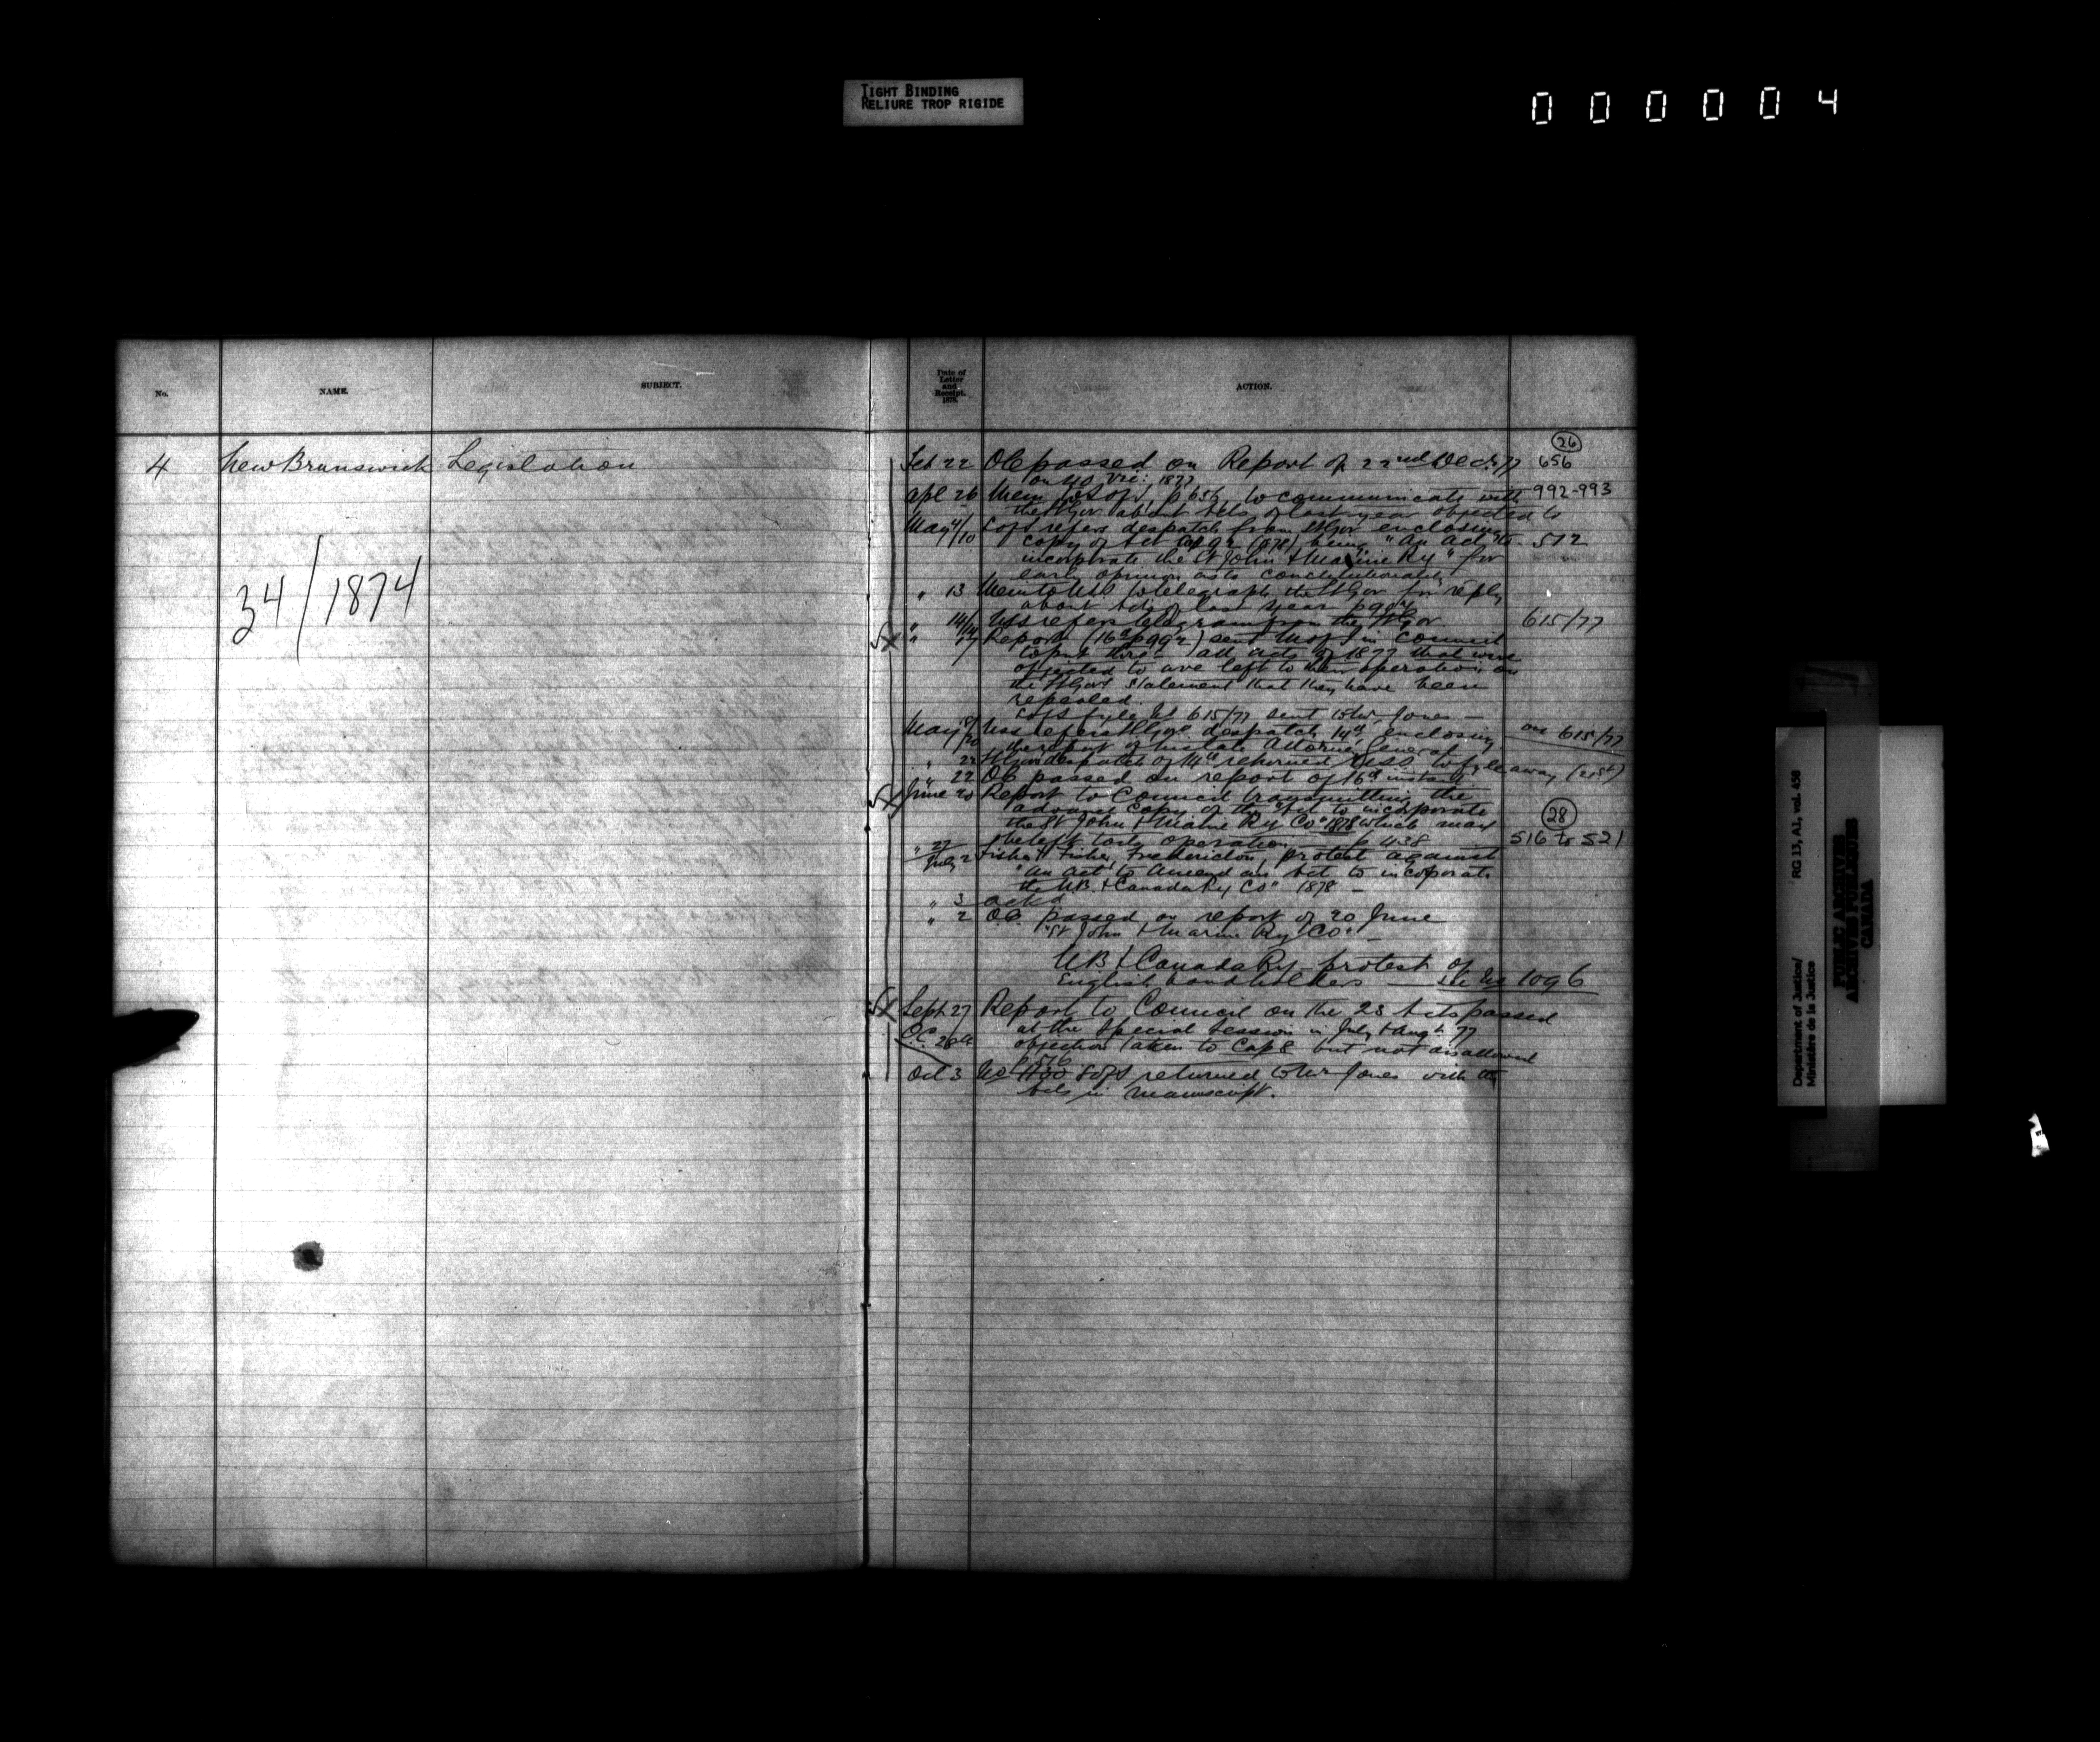 TIGHT BINDING
RELIURE TROP RIGIDE
000004
No.
NAME.
SUBJECT.
Date of
Letter
and
Receipt.
1878.
ACTION.
4 New Brunswick Legislation
34/1874
26
Feb 22 OC passed on Report of 22nd Dec. 77 656
1877
Apl 26 Mem to S of S, p 656, to communicate with 992-993
the Lt Gov about Acts of last year objected to
May 4/10 S of S refers despatch from Lt Gov enclosing
copy of Act Cap 92 (1878) being "An Act to 512
incorporate the St John & Maine Ry" for
early opinion as to constitutionality
" 13 Mem to USS to telegraph the Lt Gov for reply
about Acts of last year
" 14/14 USS refers telegram from the Lt Gov 615/77
" 17 Report (16th p 992) sent M of J in Council
all acts of 1877 that were
objected to are left to their operation on
the Lt Govs statement that they have been
repealed.
S of S fyle No 615/77 sent to Mr Jones —
May 18/20 USS refers Lt Govs despatch 14th enclosing on 615/77
the report of his late Attorney General
" 22 Lt Govs despatch of 14th returned USS to fyle away (21st)
" 22 OC passed on report of 16th instant
June 20 Report to Council transmitting the
advance copy of the "Act to incorporate
the St John & Maine Ry Co" 1878 which may 28
be left to its operation — p 438 516 to 521
" 27
July 2 Fisher & Fisher, Fredericton, protest against
"An Act to Amend an Act to incorporate
the N.B. & Canada Ry Co" 1878 —
" 3 ackd
" 2 O.C. passed on report of 20 June
"St John & Maine Ry Co" —
N B & Canada Ry protest of
English bondholders — See No 1096
Sept 27 Report to Council on the 23 Acts passed
at the Special Session in July & Augt. 77
O.C. 28th objection taken to Cap 8 but not disallowed
516
Oct 3 No 1130 S of S returned to Mr Jones with the
Acts in manuscript.
Department of Justice/
Ministère de la Justice
RG 13, A1, vol. 458
PUBLIC ARCHIVES
ARCHIVES PUBLIQUES
CANADA